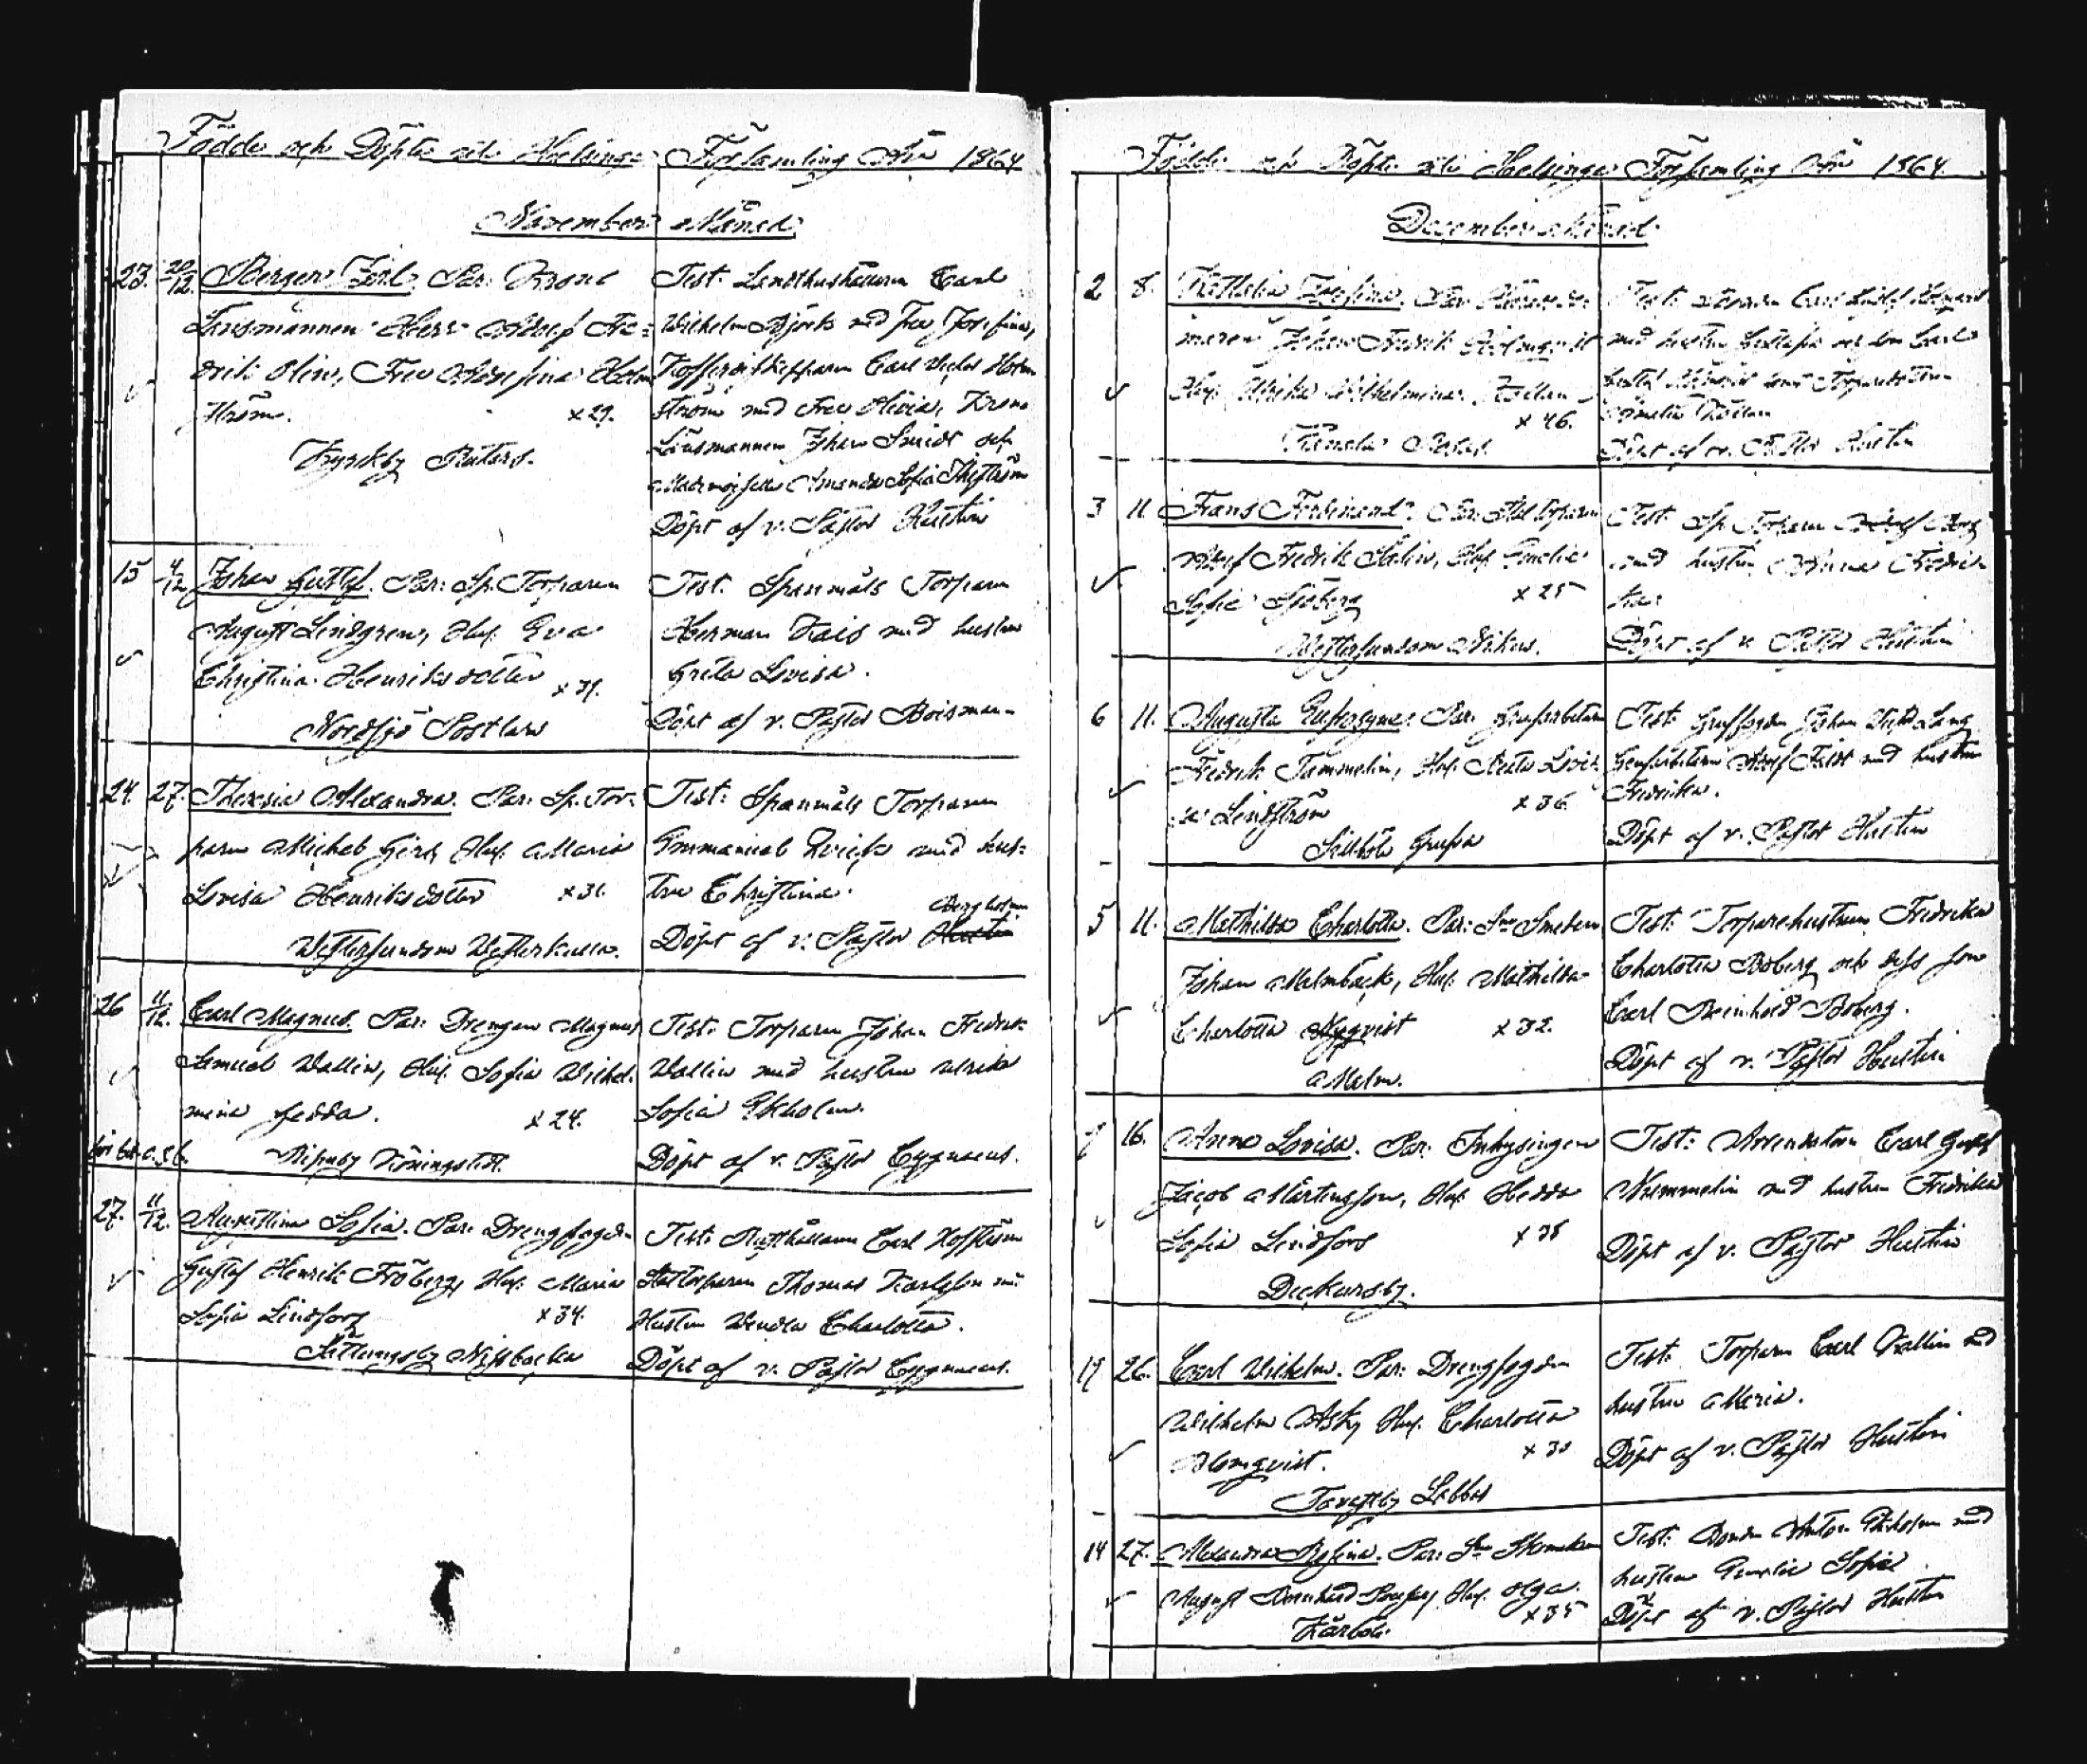 Födde och Döpte uti Helsinge Församling År 1864
November Månad
23. 20/12. Berger Jarl. Par: Krono
Länsmannen Herr Adolf Fre=
drik Olin, Fru Adolfina Holm
ström. x 29.
Kyrkby Rutars.
Test. Landthushållaren Carl
Wilhelm Björk med Fru Josefina,
Kofferdiskepparen Carl Victor Holm
ström med Fru Olivia, Krono
Länsmannen Johan Smidt och
Mademoiselle Amanda Sofia
Döpt af v. Pastor Hustin
15 4/12 Johan Gustaf. Par: Sp. Torparen
August Lindgren, Hus. Eva
Christina Henriksdotter x 31.
Nordsjö Postlars
Test. Spanmåls Torparen
Herman Kais med hustru
Greta Lovisa.
Döpt af v. Pastor Boisman
24 27. Theresia Alexandra. Par: Sp. Tor=
paren Mickel Hus. Maria
Lovisa Henriksdotter x 31
Westersundom Westerkulla.
Test: Spanmåls Torparen
Emmanuel med hus=
tru Christina.
Bergholm
Döpt af v. Pastor Hustin
26 11/12. Carl Magnus. Par: Drengen Magnus
Samuel Wallin, Hus. Sofia Wilhel=
mina Jedda. x 24.
Ripuby Köningstedt
Test: Torparen Johan Fredrik
Wallin med hustru Ulrika
Sofia Ekholm.
Döpt af v. Pastor Cygnaeus.
27. 11/12. Augustina Sofia. Par: Drengfogden
Gustaf Henrik Fröberg, Hus. Maria
Sofia Lindfors x 34.
Nissbacka
Test: Rusthållaren Carl Hoffström
Torparen Thomas Karlsson med
Hustru Wendla Charlotta.
Döpt af v. Pastor Cygnaeus.
Födde och Döpte uti Helsinge Församling År 1864.
December Månad
2 8. Nathalia Josefina. Par
Johan Fredrik
Hus. Ulrika Wilhelmina
x 46.
Test: Carl Gustaf
med hustru
Döpt af v. Pastor Hustin
3 11 Frans Ferdinand. Par: Torparen
Adolf Fredrik Stålin, Hus. Emelie
Sofia Sjöberg x 25
Westersundom Nikus.
Test. Sp. Torparen Adolf Borg
med hustru Anna Fredri=
ka.
Döpt af v. Pastor Hustin
6 11. Augusta Eufrosyne. Par: Grufarbetaren
Fredrik Tammelin, Hus. Greta Lovi=
sa Lindström x 36
Sillböle Grufva
Test: Gruffogden Johan Victor Lang
Grufarbetaren Adolf Feldt med hustru
Fredrika.
Döpt af v. Pastor Hustin
5 11. Mathilda Charlotta. Par: Sn Smeden
Johan Malmbäck, Hus. Mathilda
Charlotta Nyqvist x 32.
Malm.
Test: Torparehustrun Fredrika
Charlotta Boberg och dess son
Carl Reinhold Boberg.
Döpt af v. Pastor Hustin
7 16. Anna Lovisa. Par: Inhysingen
Jacob Mårtensson, Hus. Hedda
Sofia Lindfors x 38
Dickursby.
Test: Arrendatorn Carl Gustaf
Nummelin med hustru Fredrika
Döpt af v. Pastor Hustin
19 26. Carl Wilhelm. Par: Drengfogden
Wilhelm Ask, Hus. Charlotta
Blomqvist. x 30
Tavastby Labbas
Test: Torparen Carl Wallin med
hustru Maria.
Döpt af v. Pastor Hustin
14 27. Alexandra Rosina. Par: Sn Skomakaren
August Hus. Olga
x 35
Kårböle
Test: Bonden Anton Ekholm med
hustru Emelie Sofia
Döpt af v. Pastor Hustin